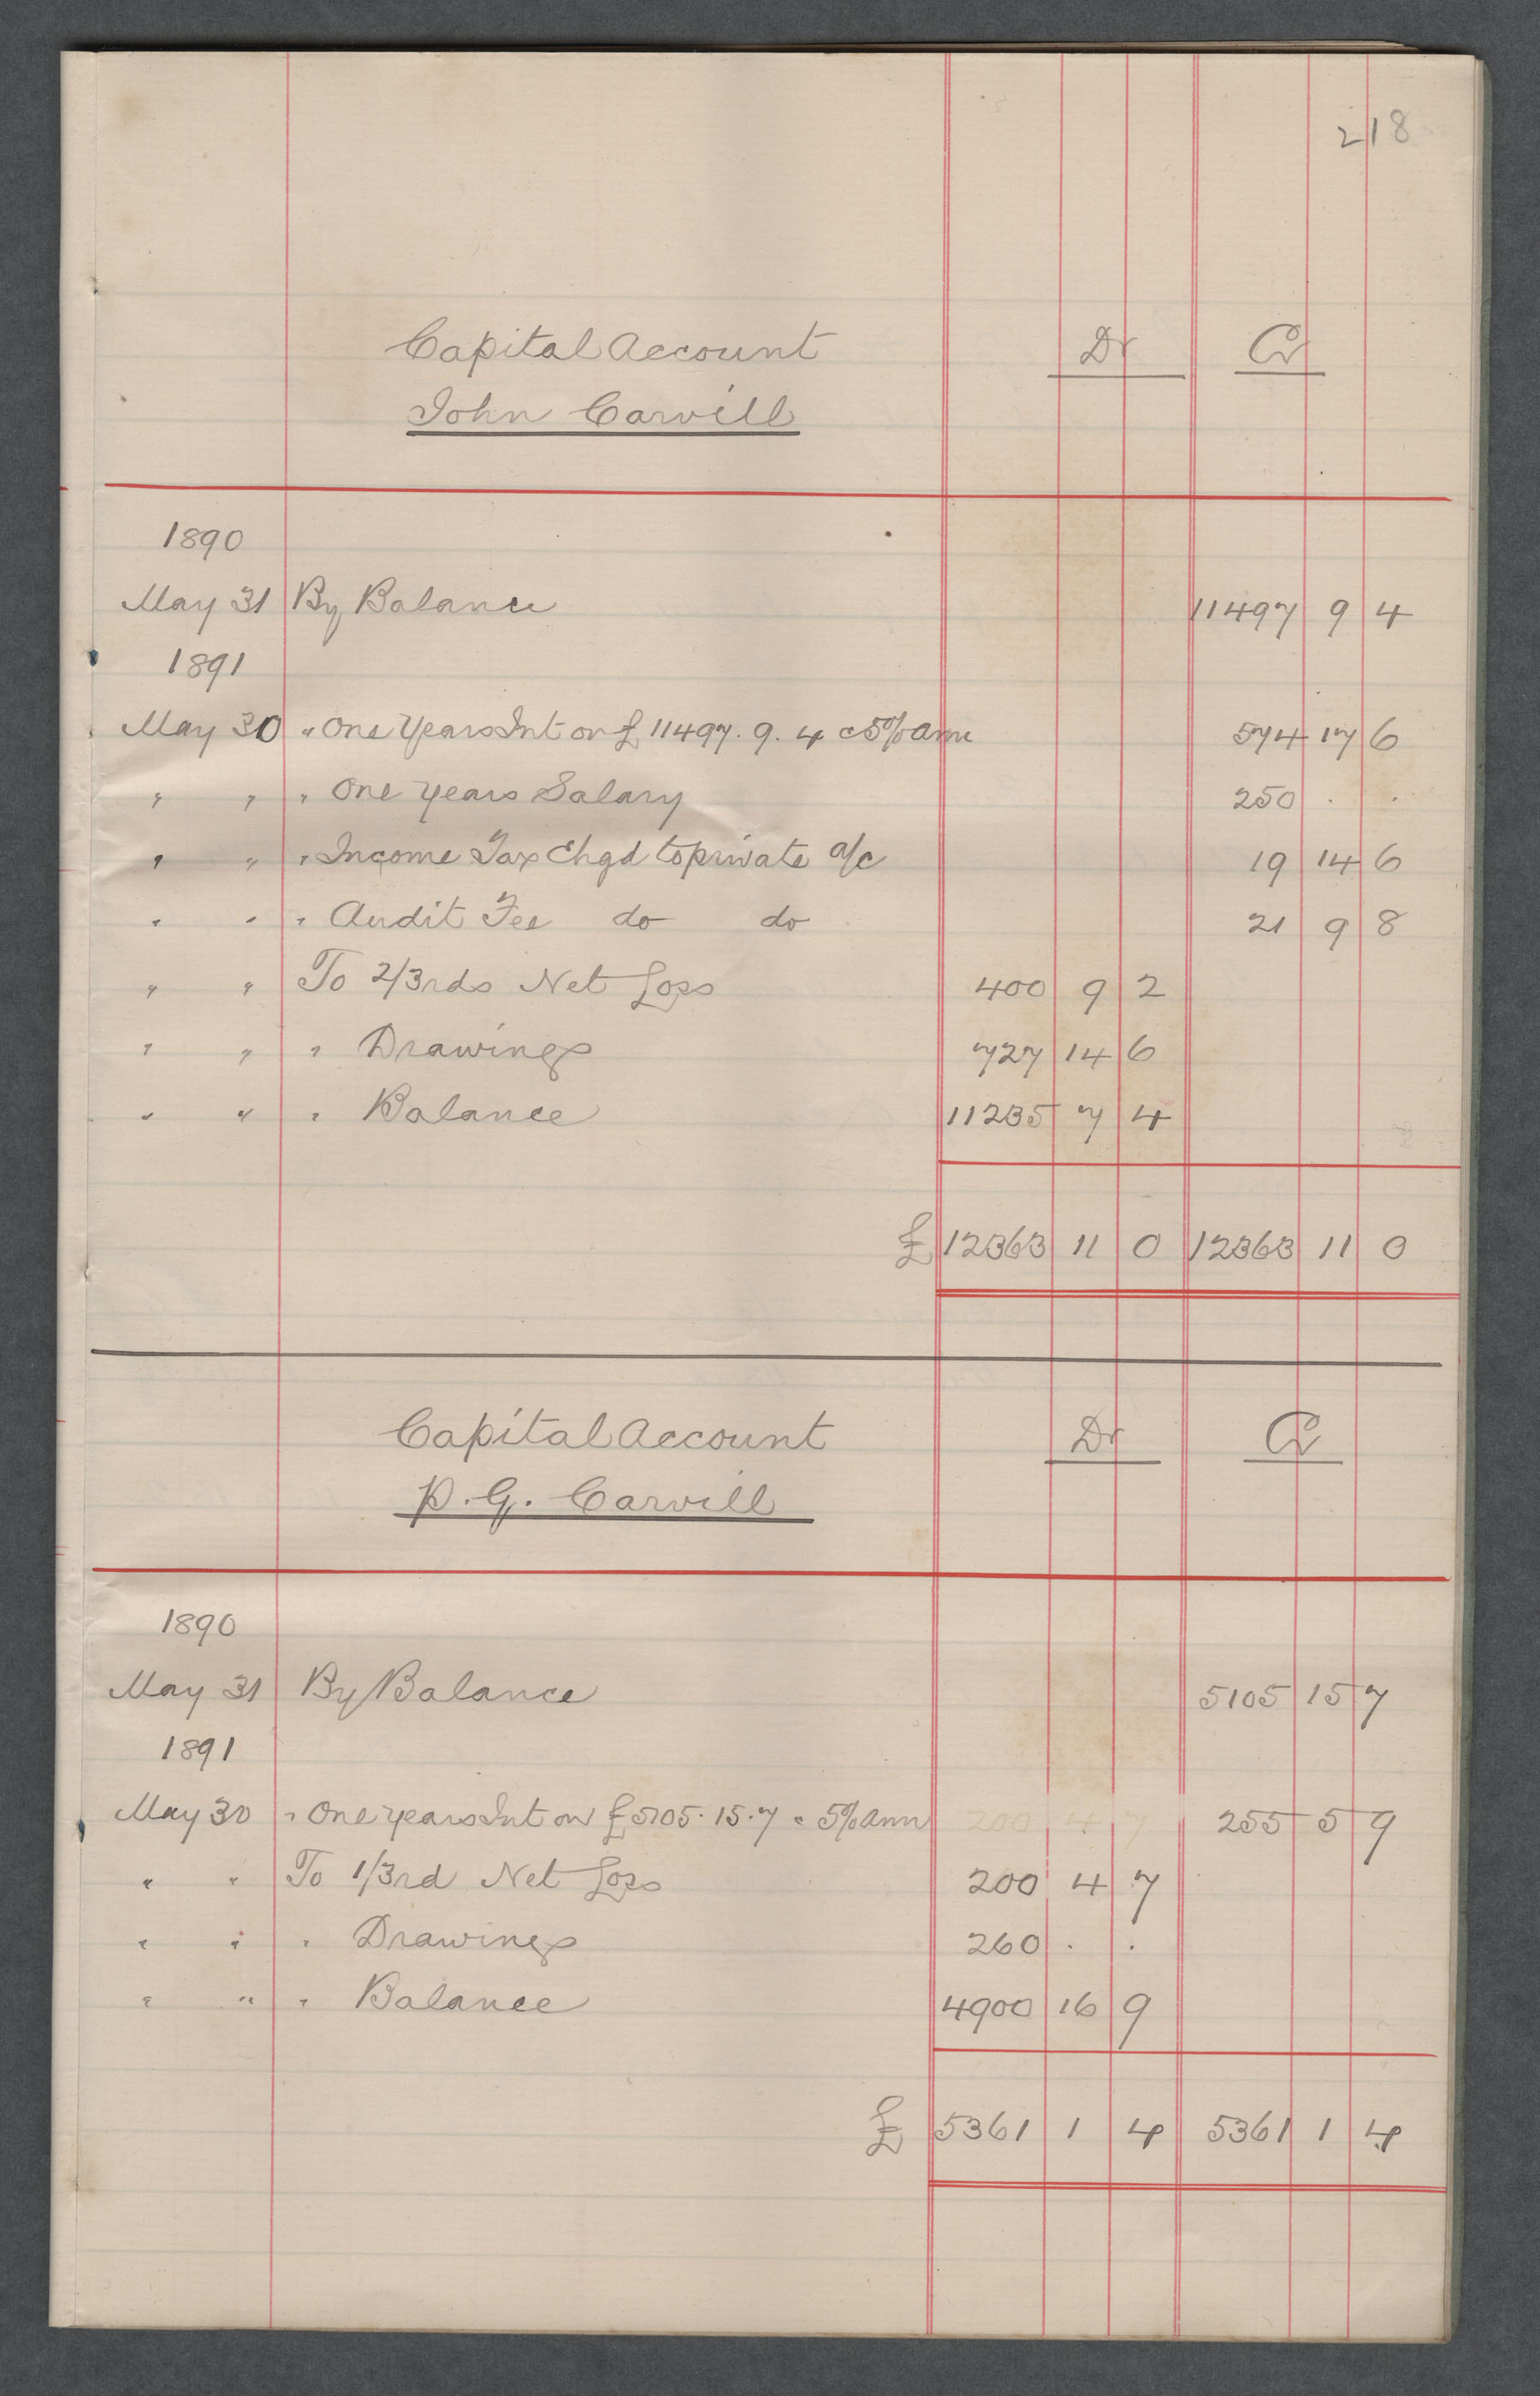 218
Capital Account Dr Cr
John Carvill
1890
May 31 By Balance 11497 9 4
1891
May 30 " One Years Int on £11497. 9. 4 @ 5% Ann 574 17 6
" " " One years Salary 250 . .
" " " Income Tax Chgd to private a/c 19 14 6
" " " Audit Fee do do 21 9 8
" " To 2/3rds Net Loss 400 9 2
" " " Drawings 727 14 6
" " " Balance 11235 7 4
£ 12363 11 0 12363 11 0
Capital Account Dr Cr
P. G. Carvill
1890
May 31 By Balance 5105 15 7
1891
May 30 " One years Int on £5105. 15. 7 @ 5% Ann 200 4 7 255 5 9
" " To 1/3rd Net Loss 200 4 7
" " " Drawings 260 . .
" " " Balance 4900 16 9
£ 5361 1 4 5361 1 4